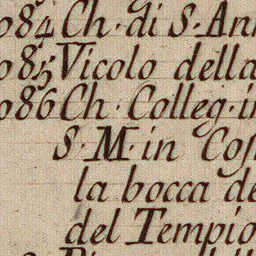 084 Ch. di S. Ann
085 Vicolo della
086 Ch. Colleg. in
S. M. in Cos
la bocca de
del Tempio